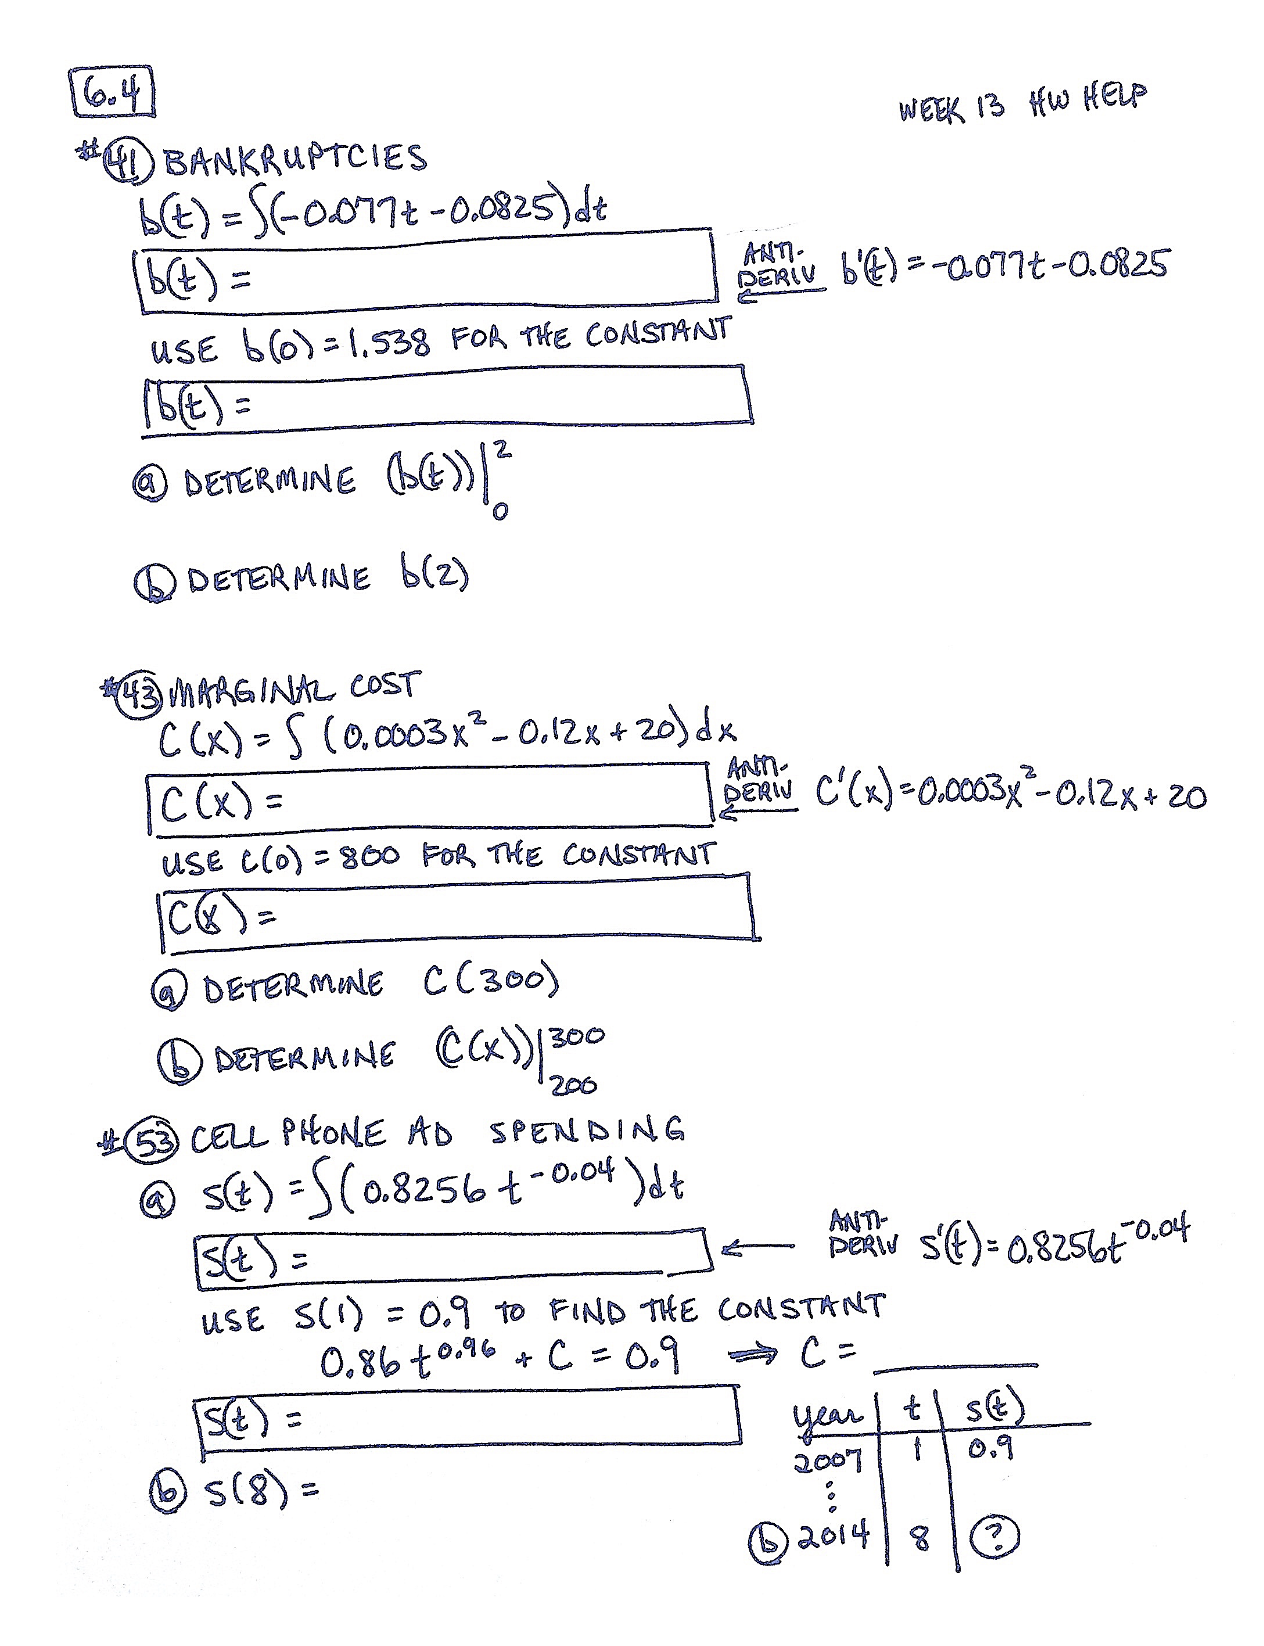 6.4
WEEK 13 HW HELP
#41 BANKRUPTCIES
b(t) = ∫(-0.077t - 0.0825)dt
b(t) =
ANTI-
DERIV b'(t) = -0.077t - 0.0825
USE b(0) = 1.538 FOR THE CONSTANT
b(t) =
a DETERMINE (b(t))|₀²
b DETERMINE b(2)
#43 MARGINAL COST
C(x) = ∫ (0.0003x² - 0.12x + 20)dx
C(x) =
ANTI-
DERIV C'(x) = 0.0003x² - 0.12x + 20
USE C(0) = 800 FOR THE CONSTANT
C(x) =
a DETERMINE C(300)
b DETERMINE (C(x))|₂₀₀³⁰⁰
#53 CELL PHONE AD SPENDING
a s(t) = ∫(0.8256 t^-0.04)dt
s(t) =
ANTI-
← DERIV s'(t) = 0.8256t^-0.04
USE s(1) = 0.9 TO FIND THE CONSTANT
0.86 t^0.96 + C = 0.9 ⇒ C = ____
s(t) =
b s(8) =
year | t | s(t)
2007 | 1 | 0.9
⋮
b 2014 | 8 | ?